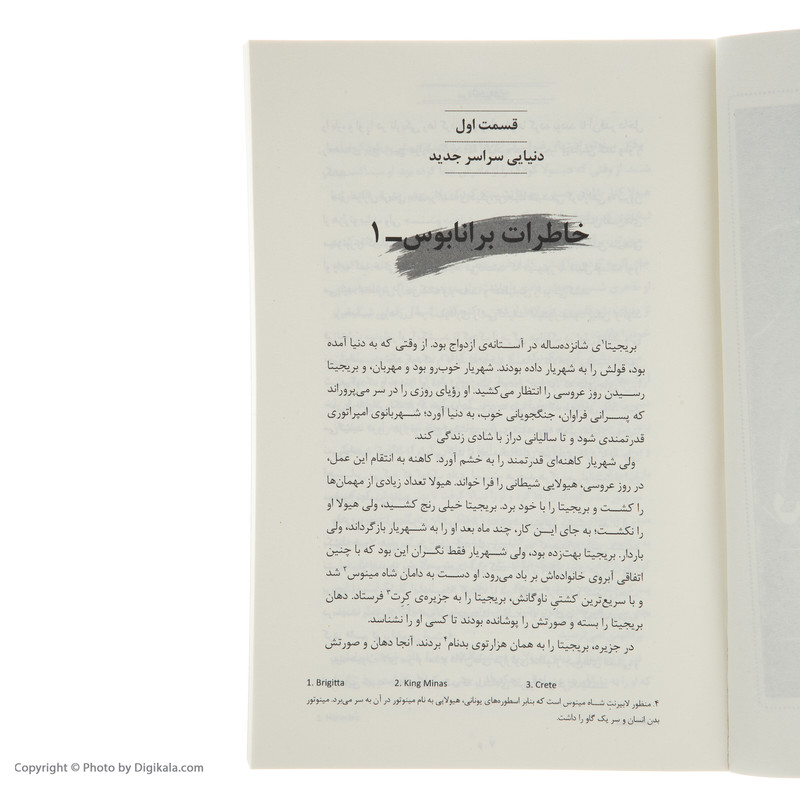 قسمت اول
دنیایی سراسر جدید
خاطرات برانابوس ـ ۱
بریجیتا۱ی شانزده‌ساله در آستانه‌ی ازدواج بود. از وقتی که به دنیا آمده
بود، قولش را به شهریار داده بودند. شهریار خوب‌رو بود و مهربان، و بریجیتا
رسیدن روز عروسی را انتظار می‌کشید. او رؤیای روزی را در سر می‌پروراند
که پسرانی فراوان، جنگجویانی خوب، به دنیا آورد؛ شهربانوی امپراتوری
قدرتمندی شود و تا سالیانی دراز با شادی زندگی کند.
ولی شهریار کاهنه‌ای قدرتمند را به خشم آورد. کاهنه به انتقام این عمل،
در روز عروسی، هیولایی شیطانی را فرا خواند. هیولا تعداد زیادی از مهمان‌ها
را کشت و بریجیتا را با خود برد. بریجیتا خیلی رنج کشید، ولی هیولا او
را نکشت؛ به جای این کار، چند ماه بعد او را به شهریار بازگرداند، ولی
باردار. بریجیتا بهت‌زده بود، ولی شهریار فقط نگران این بود که با چنین
اتفاقی آبروی خانواده‌اش بر باد می‌رود. او دست به دامان شاه مینوس۲ شد
و با سریع‌ترین کشتیِ ناوگانش، بریجیتا را به جزیره‌ی کِرِت۳ فرستاد. دهان
بریجیتا را بسته و صورتش را پوشانده بودند تا کسی او را نشناسد.
در جزیره، بریجیتا را به همان هزارتوی بدنام۴ بردند. آنجا دهان و صورتش
1. Brigitta 2. King Minas 3. Crete
۴. منظور لابیرنتِ شاه مینوس است که بنابر اسطوره‌های یونانی، هیولایی به نام مینوتور در آن به سر می‌برد. مینوتور
بدن انسان و سر یک گاو را داشت.
Copyright © Photo by Digikala.com